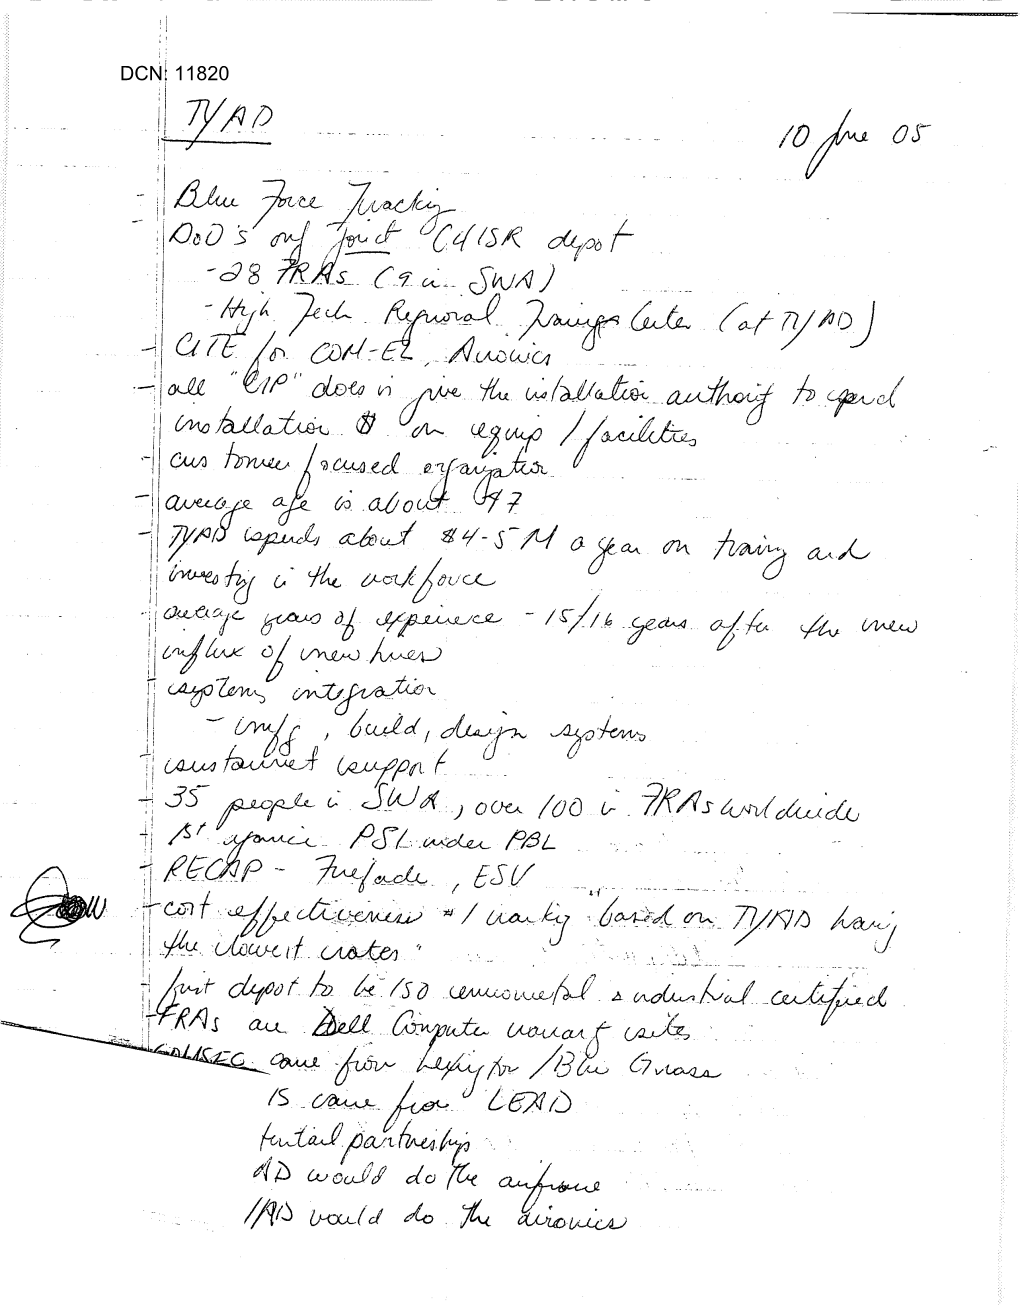 DCN: 11820
TYAD
10 June 05
- Blue Force Tracking
- DoD's only Joint C4ISR depot
- 28 FRAs (9 in SWA)
- High Tech Regional Training Center (at TYAD)
- CITE for COM-EL, Avionics
- all "CIP" does is give the installation authority to spend
installation $ on equip / facilities
- customer focused organization
- average age is about 47
- TYAD spends about $4-5 M a year on training and
investing in the workforce
- average years of experience - 15/16 years after the new
influx of new hires
- systems integration
- mfg, build, design systems
- sustainmet support
- 35 people in SWA, over 100 in FRAs worldwide
- 1st PSI under PBL
- RECAP - Firefinder, ESV
- cost effectiveness #1 ranking "based on TYAD having
the lowest rates"
- first depot to be ISO environmental & industrial certified
- FRAs are Dell Computer warranty sites
COMSEC came from Lexington / Blue Grass
IS came from LEAD
partnerships
AD would do the airframe
YAD would do the avionics